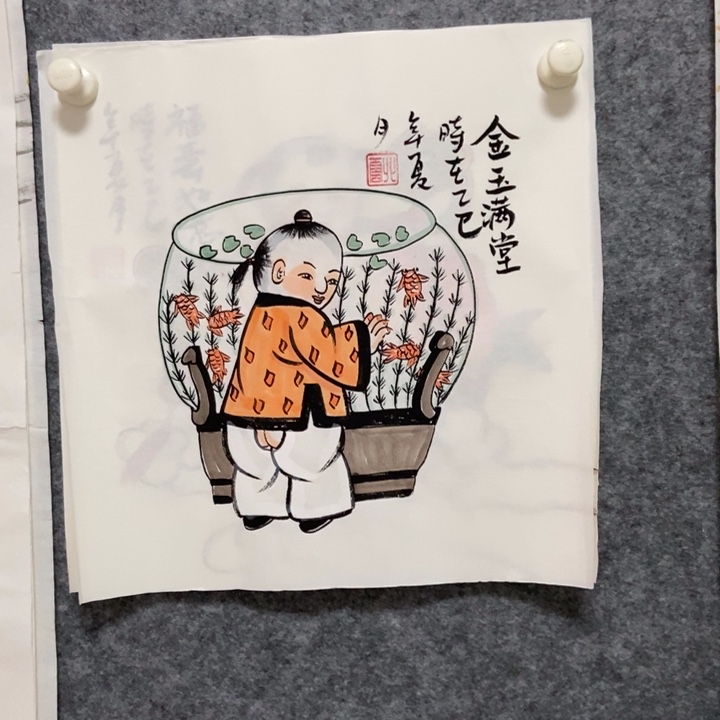 金玉满堂
時在乙巳
年夏
月